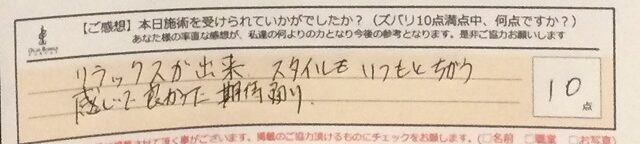 【ご感想】本日施術を受けられていかがでしたか？（ズバリ10点満点中、何点ですか？）
あなた様の率直な感想が、私達の何よりの力となり今後の参考となります。是非ご協力お願いします
リラックスが出来 スタイルも いつもとちがう
感じで良かった 期待通り
10
点
させて頂く事がございます。掲載のご協力頂けるものにチェックをお願します。（□名前 □職業 □お写真）